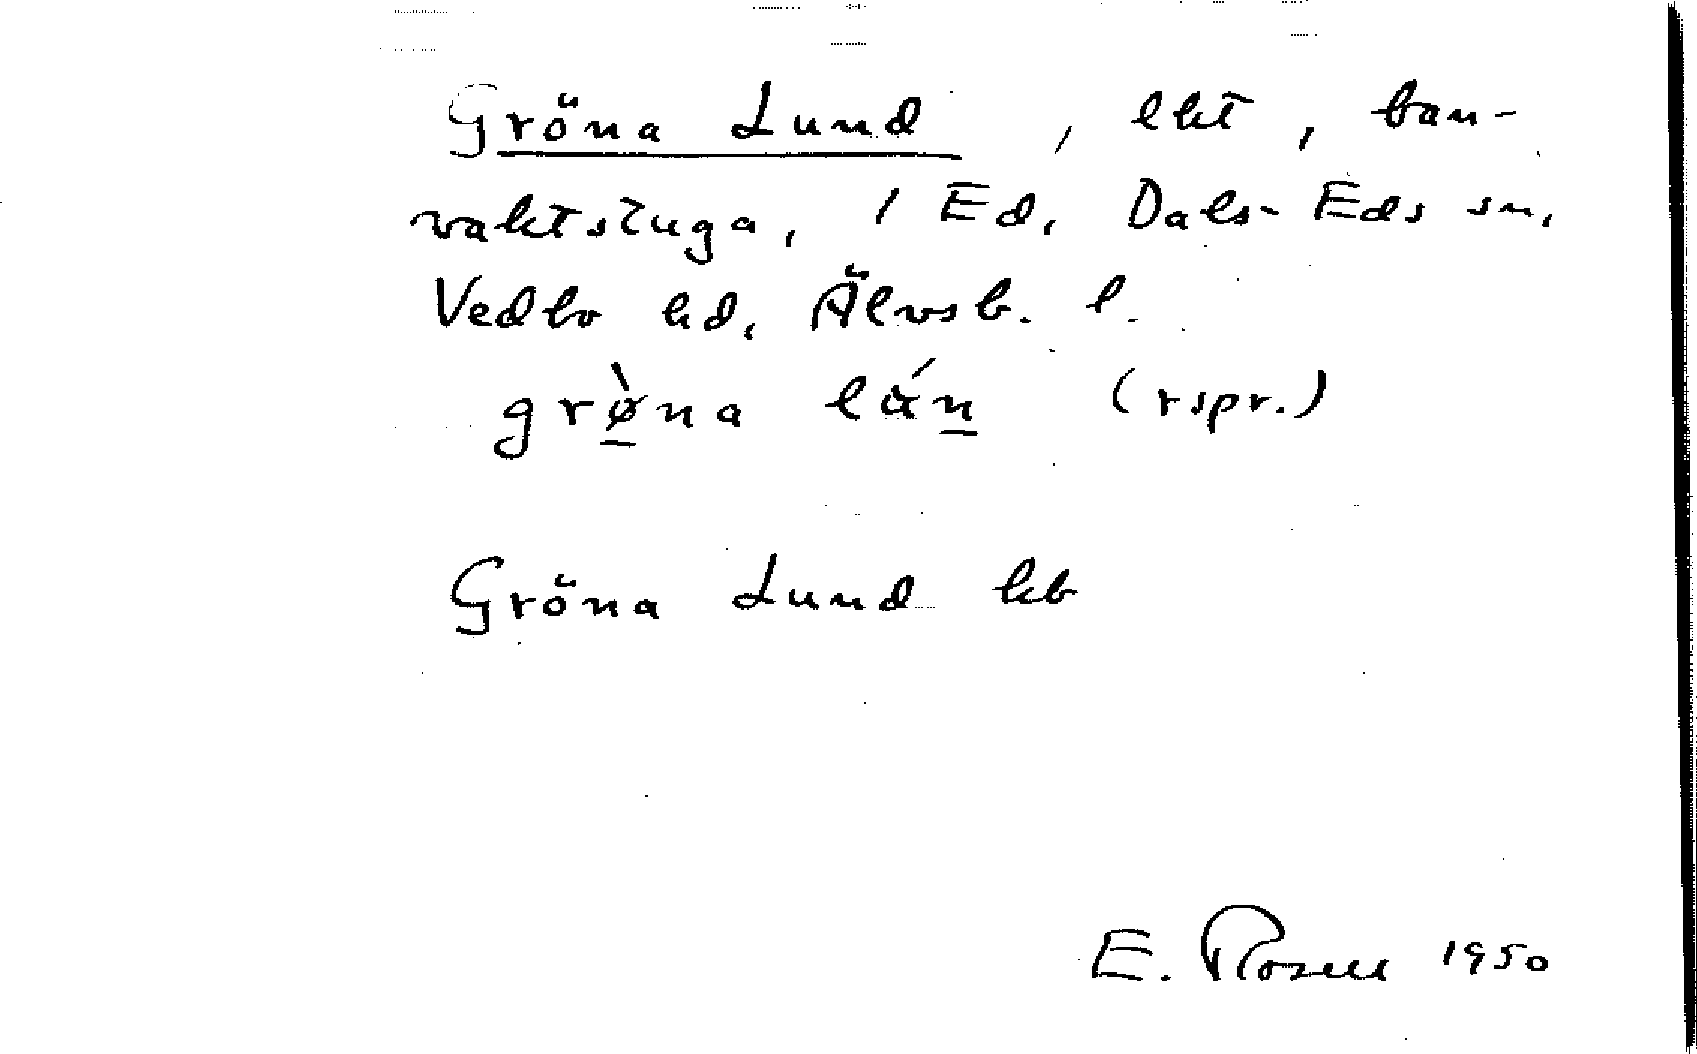 Gröna Lund, lht, ban-
vaktstuga, 1 Ed, Dals-Eds sn,
Vedbo hd, Älvsb. l.
grø̠̀na lán̠ (rspr.)
Gröna Lund kb
E. Rosell 1950